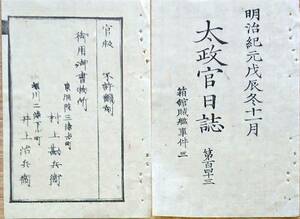 明治紀元戊辰冬十一月
太政官日誌 第百四十三
箱館賊艦事件 三
官版 不許翻刻
御用御書物所
東洞院三條上ル町
村上勘兵衛
堀川二條下ル町
井上治兵衛